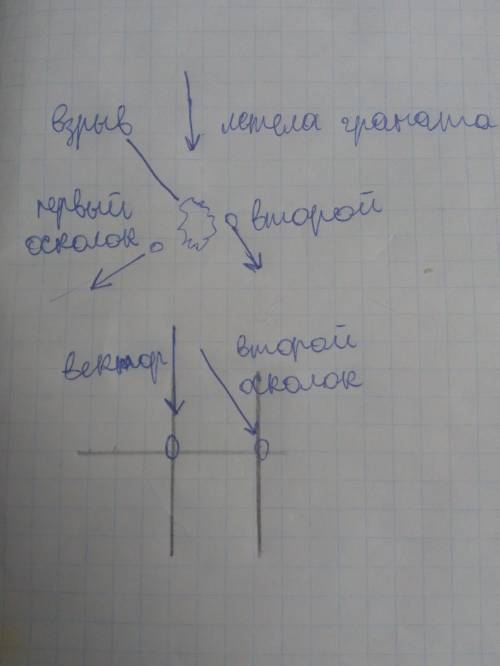 взрыв
летела граната
первый
осколок
второй
вектор
второй
осколок